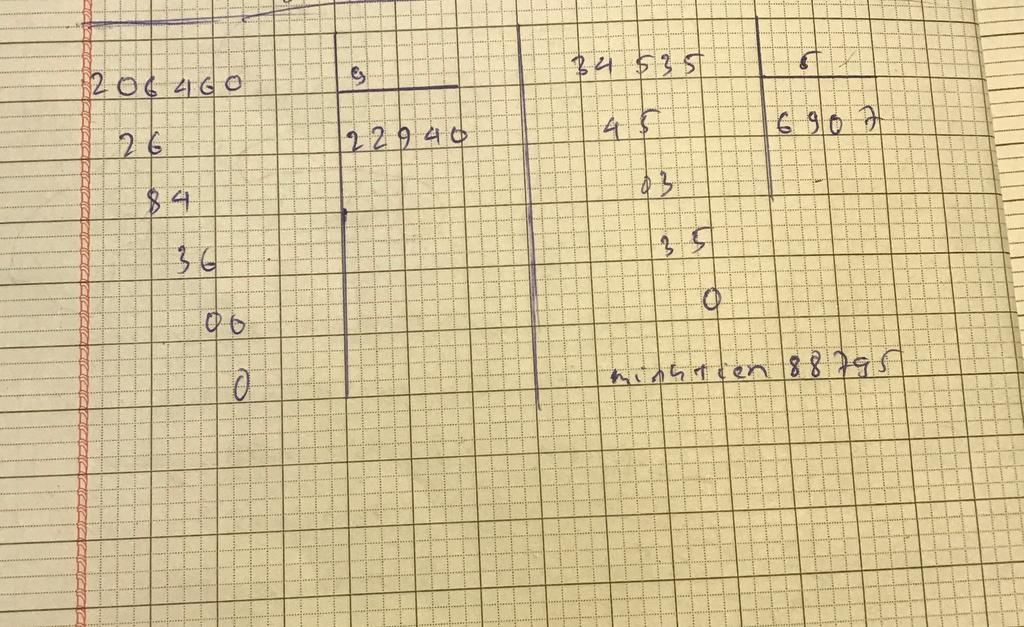 206460 9
26 22940
84
36
00
0
34535 5
45 6907
03
35
0
minhtien 88795